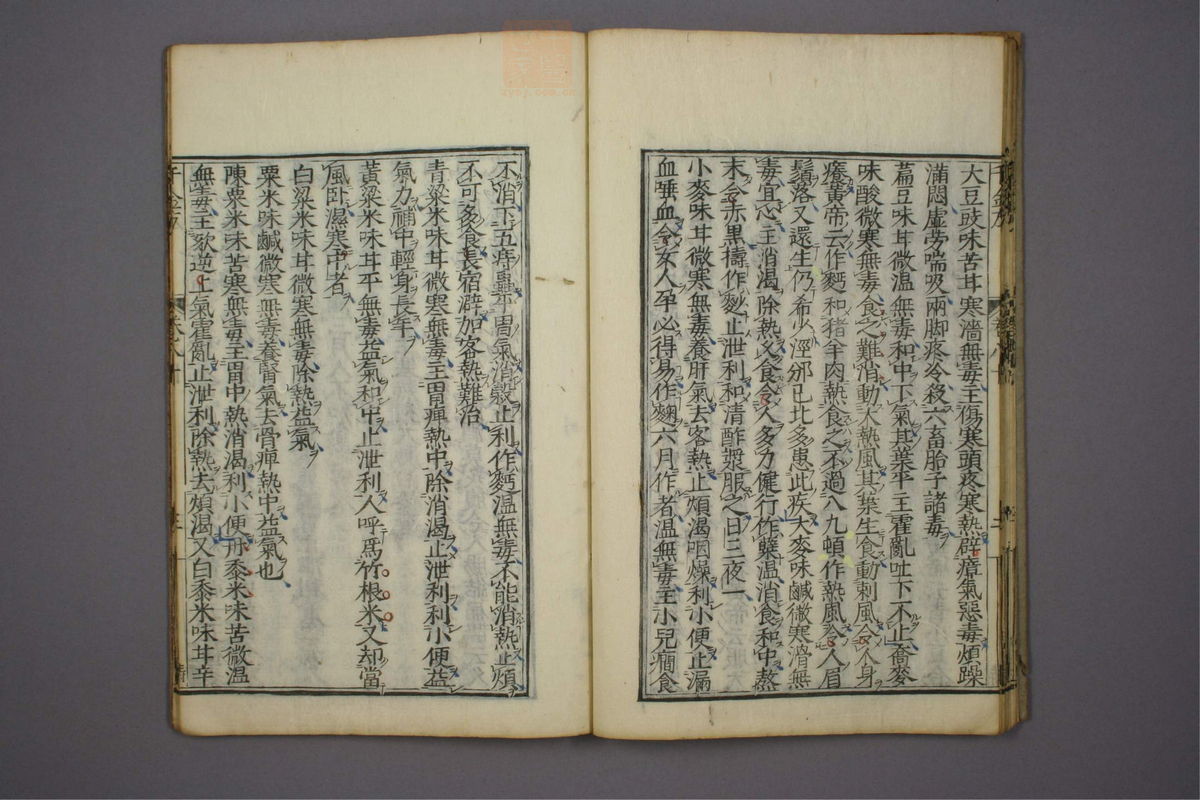 大豆豉味苦甘寒濇無毒主傷寒頭疼寒熱辟瘴氣惡毒煩躁
滿悶虛勞喘吸兩脚疼冷殺六畜胎子諸毒
藊豆味甘微溫無毒和中下氣其葉平主霍亂吐下不止蕎麥
味酸微寒無毒食之難消動大熱風其葉生食動刺風令人身
癢黃帝云作麪和猪羊肉熱食之不過八九頓作熱風令人眉
鬚落又還生仍希少涇邠已北多患此疾大麥味鹹微寒滑無
毒宜心主消渴除熱久食令人多力健行作糵溫消食和中熬
末令赤黑擣作麨止泄利和清酢漿服之日三夜一
小麥味甘微寒無毒養肝氣去客熱止煩渴咽燥利小便止漏
血唾血令女人孕必得易作麴六月作者溫無毒主小兒癇食
不消下五痔蟲平胃氣消穀止利作麪溫無毒不能消熱止煩
不可多食長宿澼加客熱難治
青粱米味甘微寒無毒主胃痺熱中除消渴止泄利利小便益
氣力補中輕身長年
黃粱米味甘平無毒益氣和中止泄利人呼爲竹根米又却當
風卧濕寒中者
白粱米味甘微寒無毒除熱益氣
粟米味鹹微寒無毒養腎氣去骨痺熱中益氣也
陳粟米味苦寒無毒主胃中熱消渴利小便丹黍米味苦微溫
無毒主欬逆上氣霍亂止泄利除熱去煩渴又白黍米味甘辛